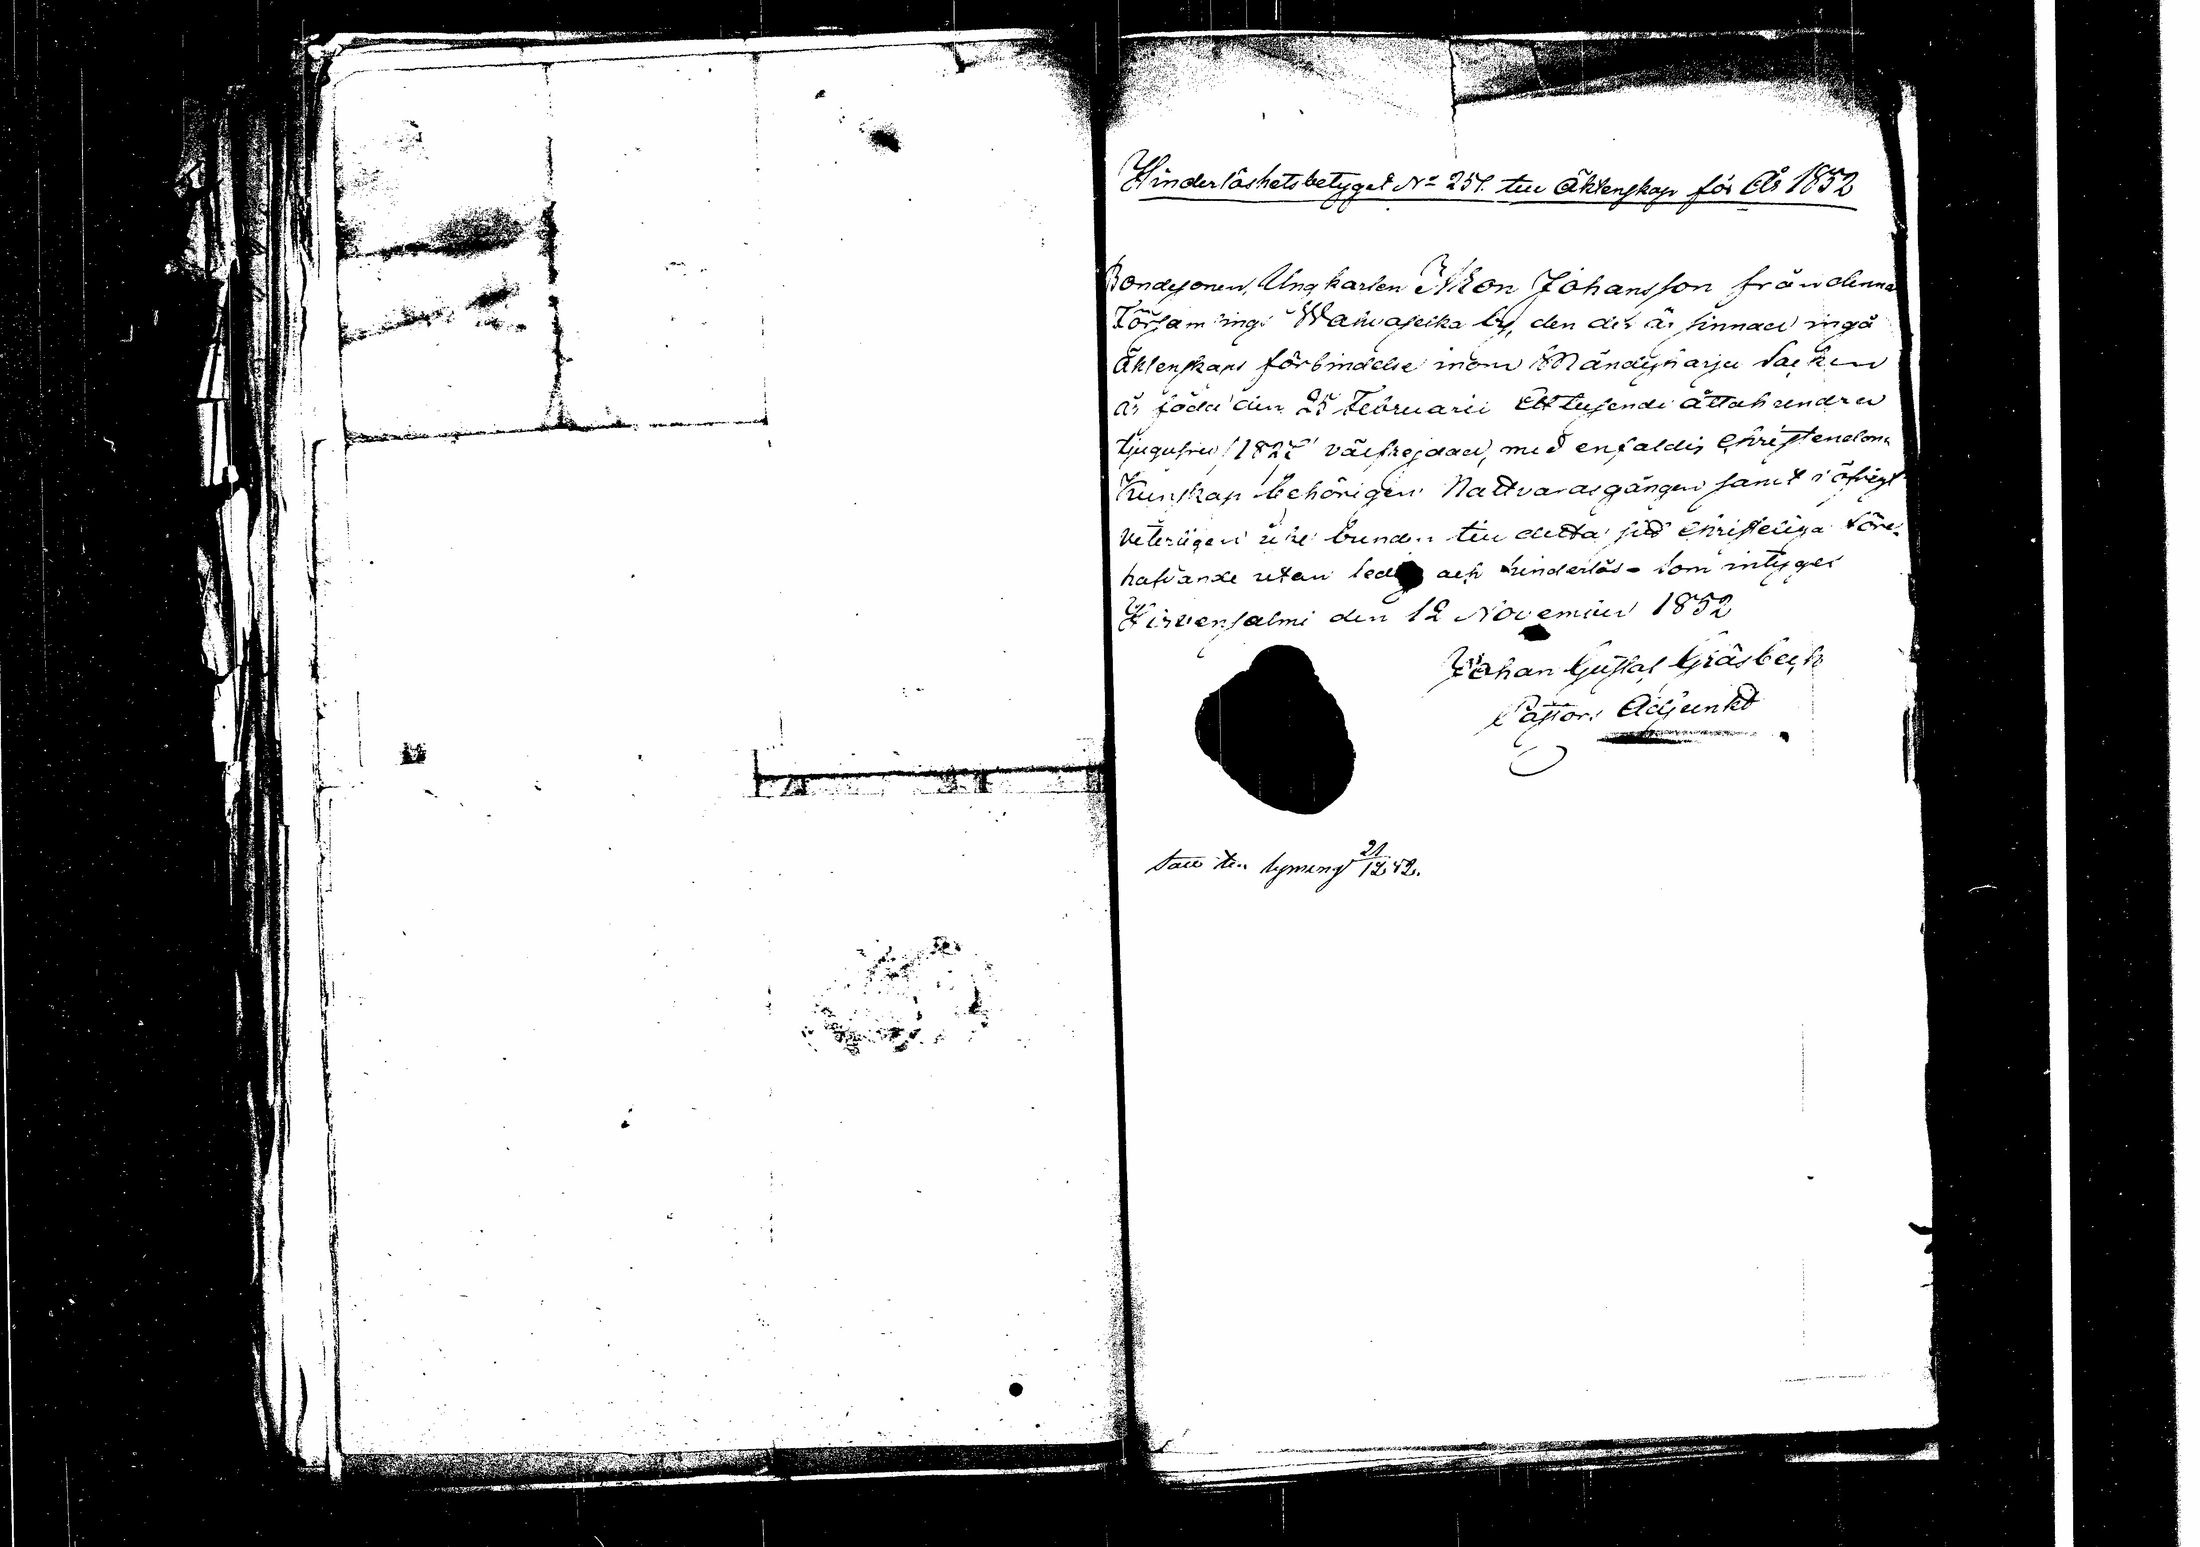 Hinderlöshetsbetyget No 257. till Äktenskap för År 1852
Bondesonen, Ungkarlen Mon Johansson från denna
Församlings Wahvaselkä by, den der är sinnad ingå
Äktenskaps förbindelse inom Mändyharju Socken
är född den 25 Februarii Ett tusende åttahundra
tjugusju /1827/ välfrejdad, med enfaldig Christendoms
Kunskap behörigen Nattvardsgången samt i öfrigt
veterligen icke bunden till detta sitt Christeliga Före-
hafvande utan ledig och hinderlös - som intygas
Hirvensalmi den 12 November 1852
Johan Gustaf Gråsbeck
Pastors Adjunkt
lysning 21/12 52.